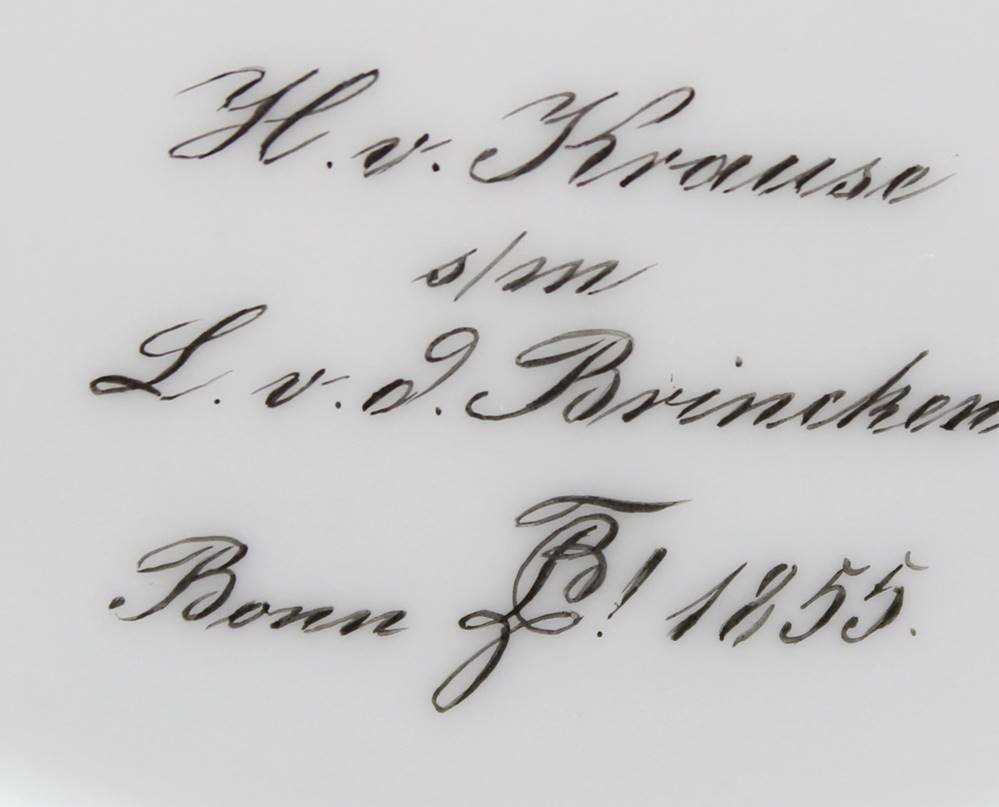 H. v. Krause
s/m
L. v. d. Brincken
Bonn ! 1855.